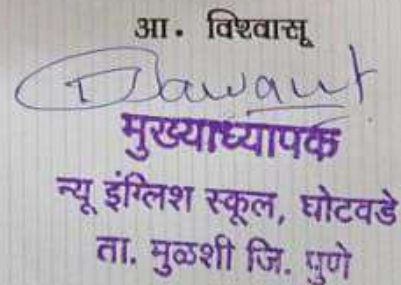 आ. विश्वासू
मुख्याध्यापक
न्यू इंग्लिश स्कूल, घोटवडे
ता. मुळशी जि. पुणे